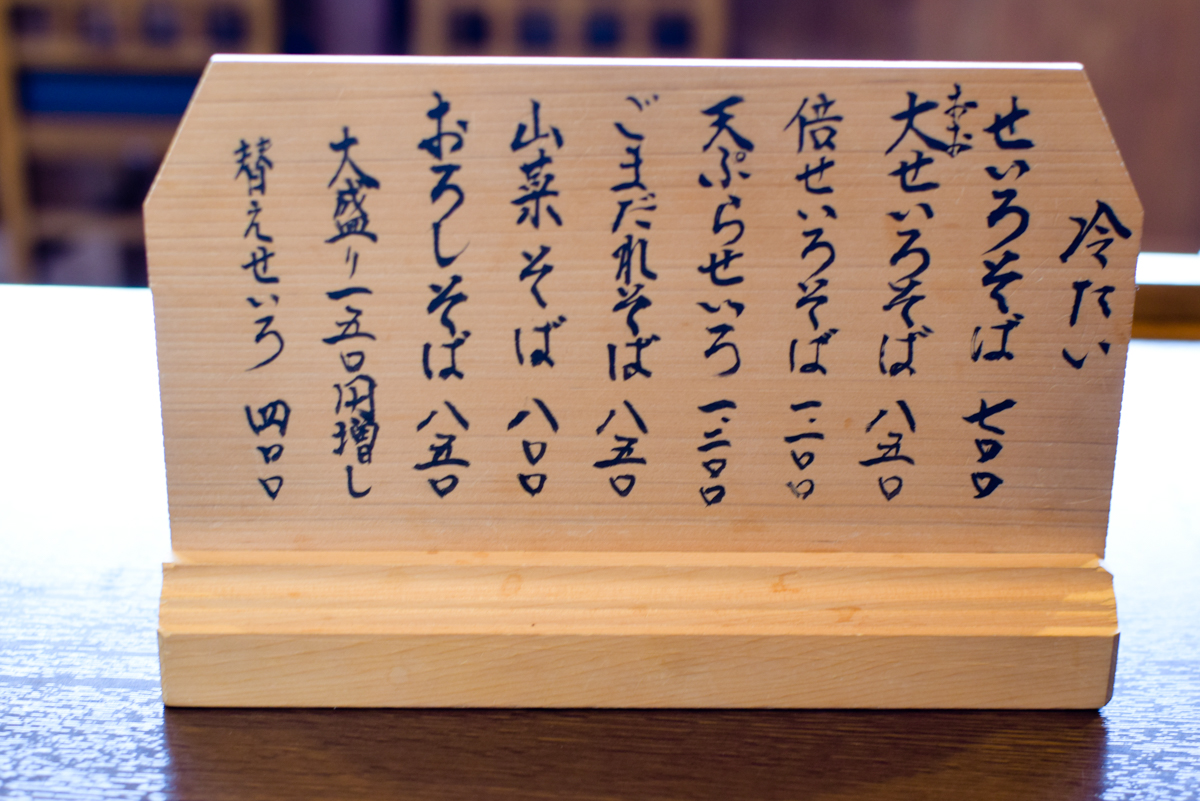 冷たい
せいろそば 七〇〇
おお
大せいろそば 八五〇
倍せいろそば 一、二〇〇
天ぷらせいろ 一、二〇〇
ごまだれそば 八五〇
山菜そば 八〇〇
おろしそば 八五〇
大盛り一五〇円増し
替えせいろ 四〇〇